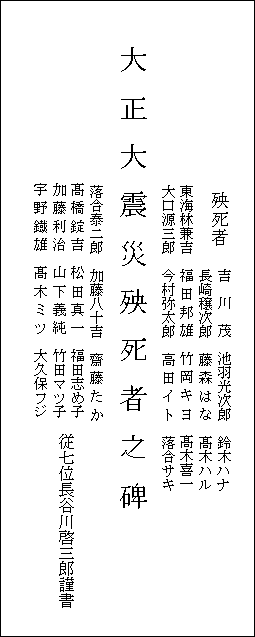 殃死者
吉川茂 池羽光次郎 鈴木ハナ
長崎穣次郎 藤森はな 髙木ハル
東海林兼吉 福田邦雄 竹岡キヨ 髙木喜一
大口源三郎 今村弥太郎 高田イト 落合サキ
大正大震災殃死者之碑
落合泰二郎 加藤八十吉 齋藤たか
髙橋錠吉 松田真一 福田志め子
加藤利治 山下義純 竹田マツ子
宇野鐵雄 髙木ミツ 大久保フジ
従七位長谷川啓三郎謹書